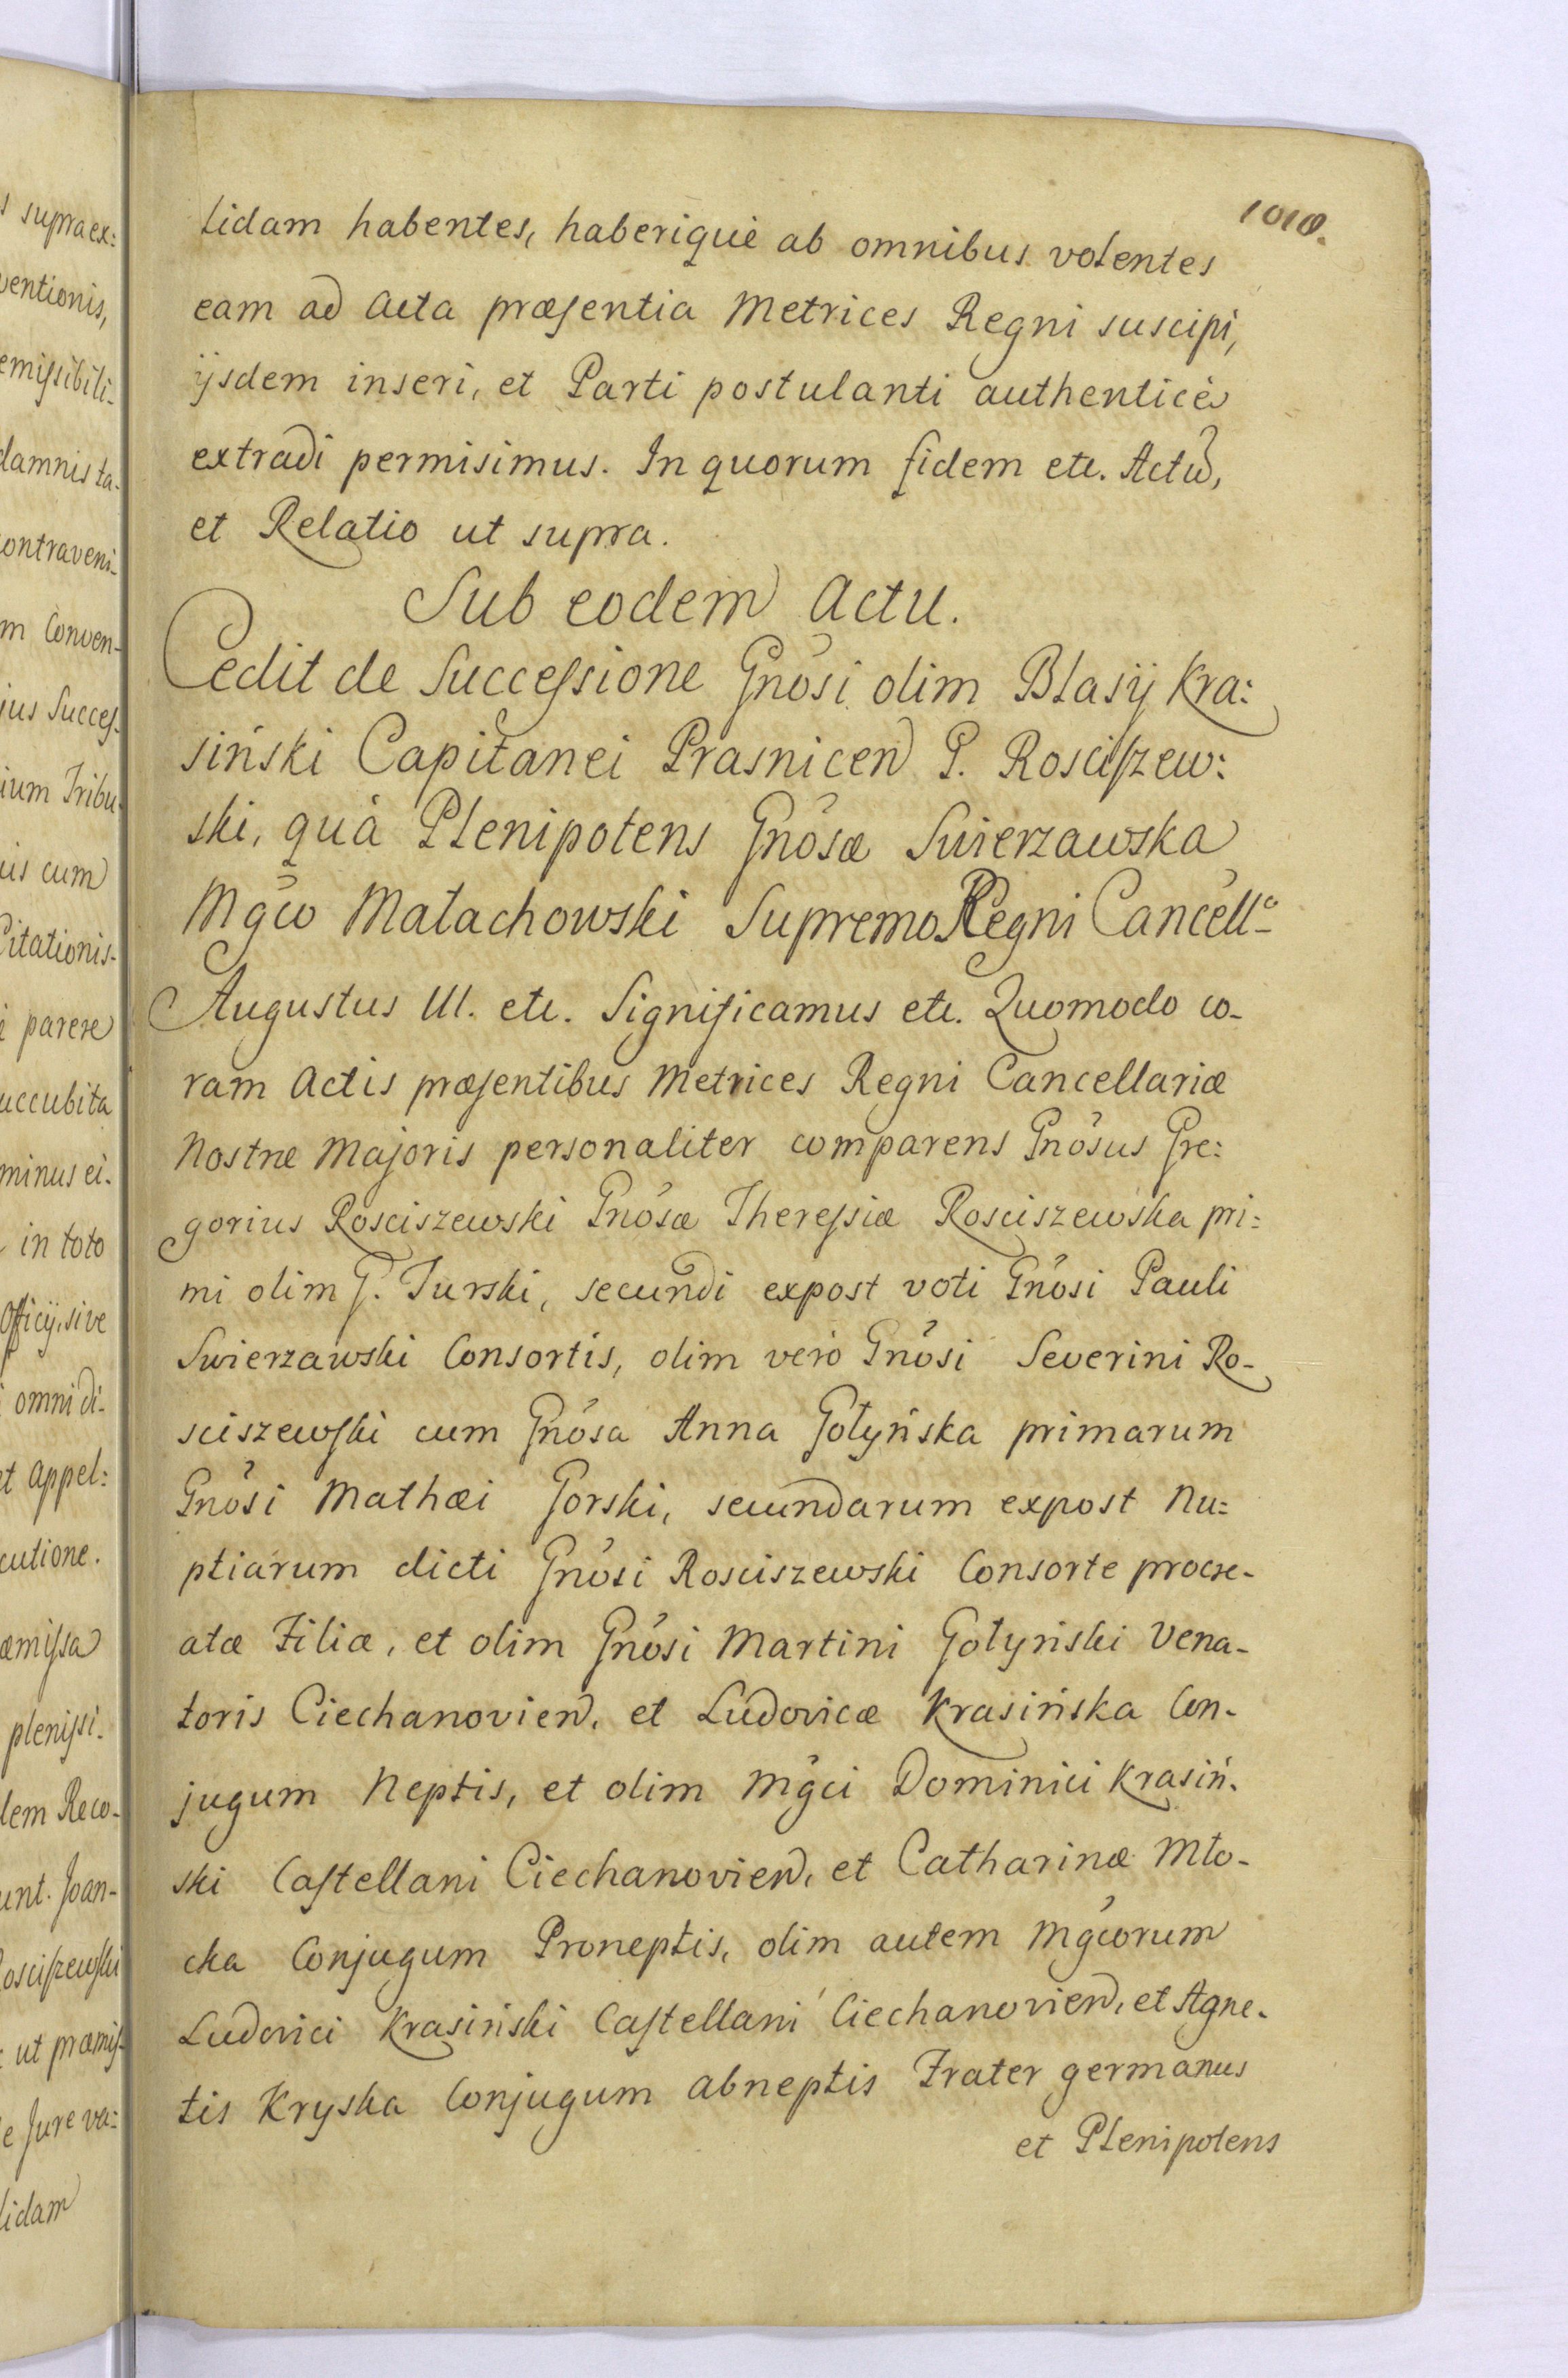 s supraex:
ventionis,
emissibili-
damnis ta-
contraveni-
m Conven-
jus Succes-
ium Tribu-
uis cum
Citationis-
è parere
uccubita
minus ei-
in toto
Officij, sive
omni di-
et appel:
cutione.
æmissa
plenissi-
dem Reco-
unt. Joan-
Rosciszewski
: ut præmis-
e Jure va:
lidam
1010.
lidam habentes, haberique ab omnibus volentes
eam ad Acta præsentia Metrices Regni suscipi,
ijsdem inseri, et Parti postulanti authenticè
extradi permisimus. In quorum fidem etc. Actũ,
et Relatio ut supra.
Sub eodem Actu.
Cedit de Successione Gnosi olim Blasij Kra:
siński Capitanei Prasnicen G. Rosciszew:
ski, quà Plenipotens Gnosæ Swierzawska
Mgco Małachowski Supremo Regni Cancell°
Augustus III. etc. Significamus etc. Quomodo co-
ram Actis præsentibus Metrices Regni Cancellariæ
Nostræ Majoris personaliter comparens Gnosus Gre:
gorius Rosciszewski Gnosæ Theressiæ Rosciszewska pri:
mi olim G. Turski, secundi expost voti Gnosi Pauli
Swierzawski Consortis, olim verò Gnosi Severini Ro-
sciszewski cum Gnosa Anna Gołyńska primarum
Gnosi Mathæi Gorski, secundarum expost Nu:
ptiarum dicti Gnosi Rosciszewski Consorte procre-
atæ Filiæ, et olim Gnosi Martini Gołyński Vena-
toris Ciechanovien, et Ludovicæ Krasińska Con-
jugum Neptis, et olim Mgci Dominici Krasiń-
ski Castellani Ciechanovien, et Catharinæ Mło-
cka Conjugum Proneptis, olim autem Mgcorum
Ludovici Krasiński Castellani Ciechanovien, et Agne-
tis Kryska Conjugum abneptis Frater germanus
et Plenipotens